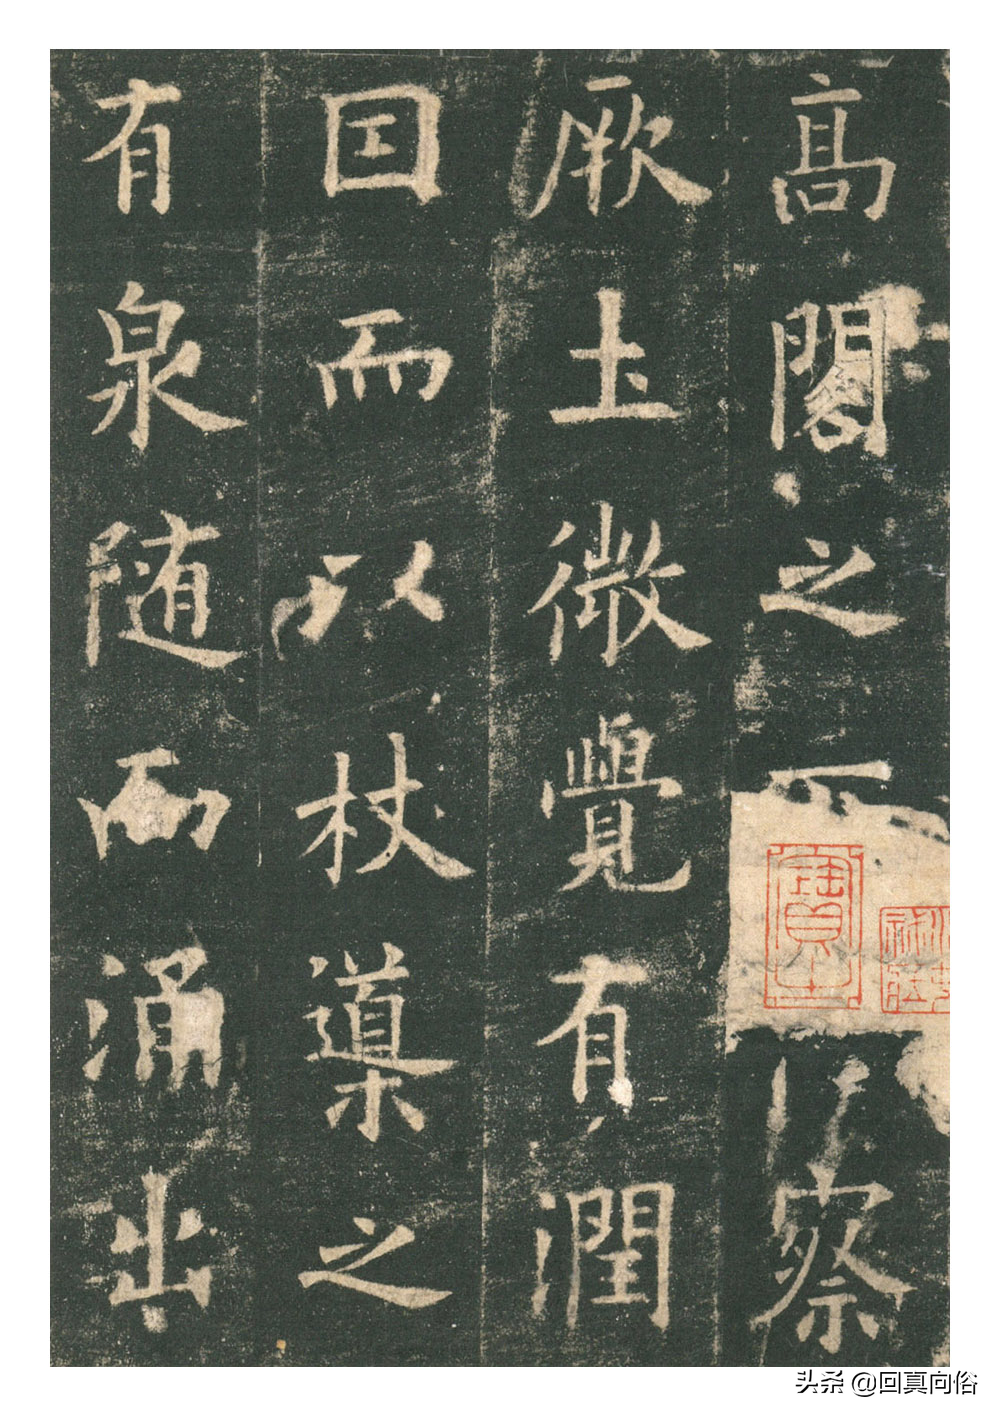 髙閣之下察
厥圡微覺有潤
囙而以杖導之
有泉随而涌出
头条 @回真向俗